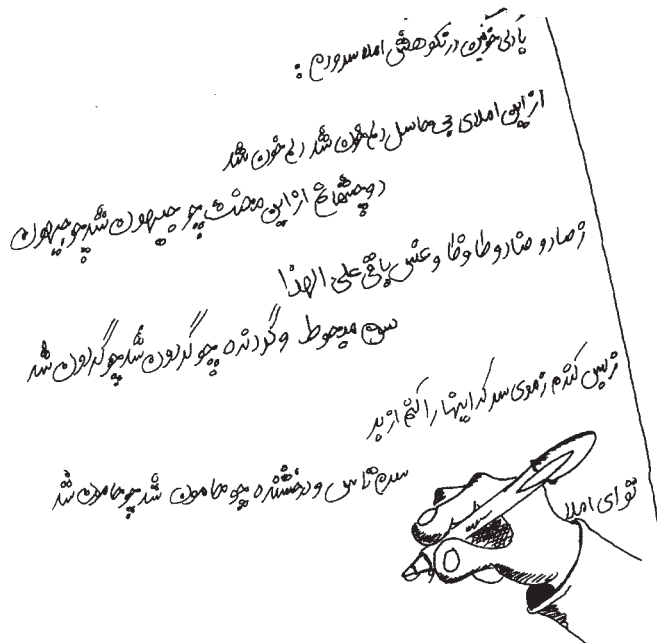 با دلی خونین در نکوهش املا سرودم :
از این املای بی حاسل دلم خون شد دلم خون شد
دو چشمانم از این محنت چو جیهون شد چو جیهون
ز صاد و ضاد و طا و ظا و باقی علی الهذا
سرم و گردنده چو گردون شد چو گردون شد
ز بس کندم ز موی سر که اینها را کنم از بر
سرم تاس و درخشنده چو هامون شد چو هامون شد
تو ای املا